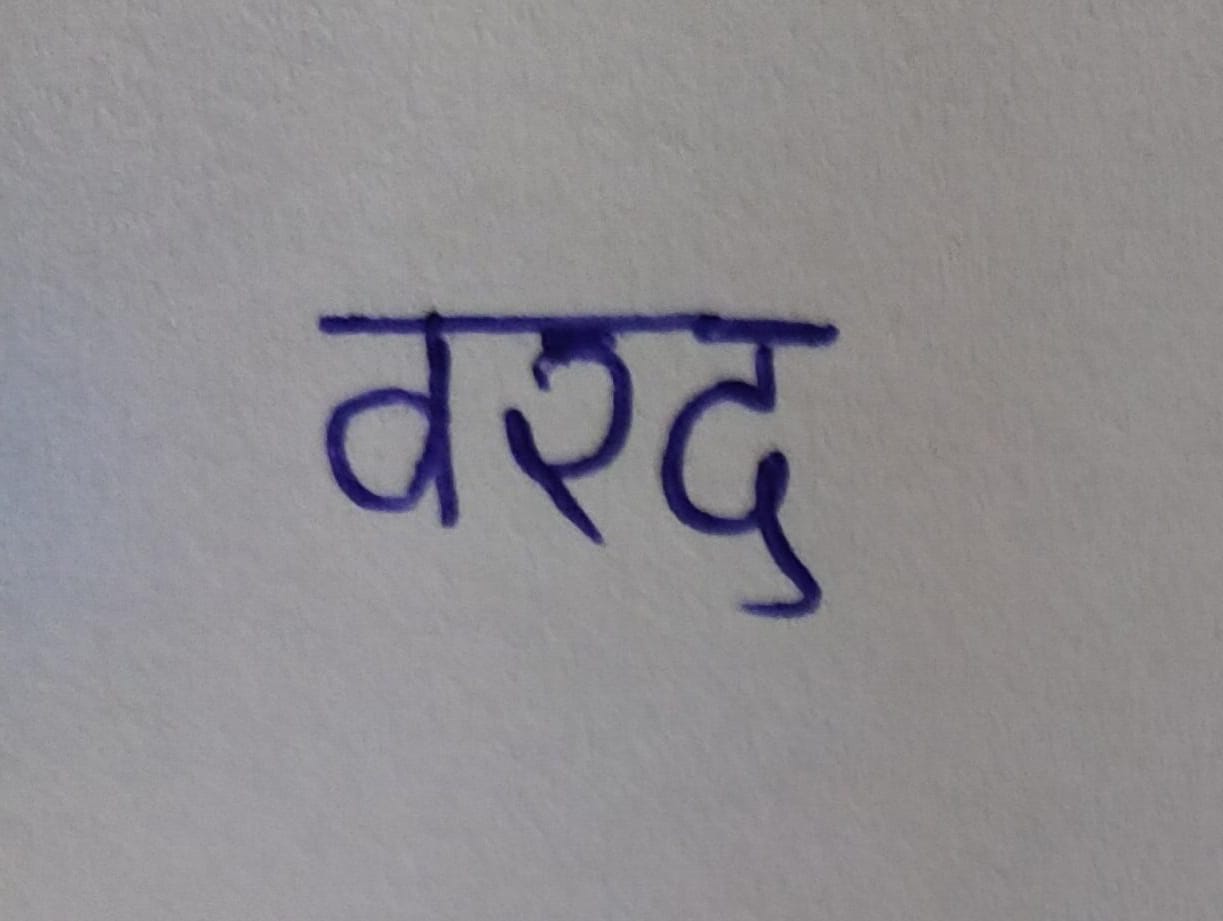 वरद